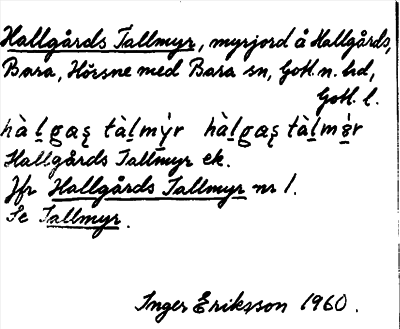 Hallgårds Tallmyr, myrjord å Hallgårds,
Bara, Hörsne med Bara sn, Gotl. n. hd,
Gotl. l.
hàḷgaʂ tàḷmỵ̀r hàḷgaʂ tàḷmə̣̀r
Hallgårds Tallmyr ek.
Jfr Hallgårds Tallmyr nr 1.
Se Tallmyr.
Inger Eriksson 1960.